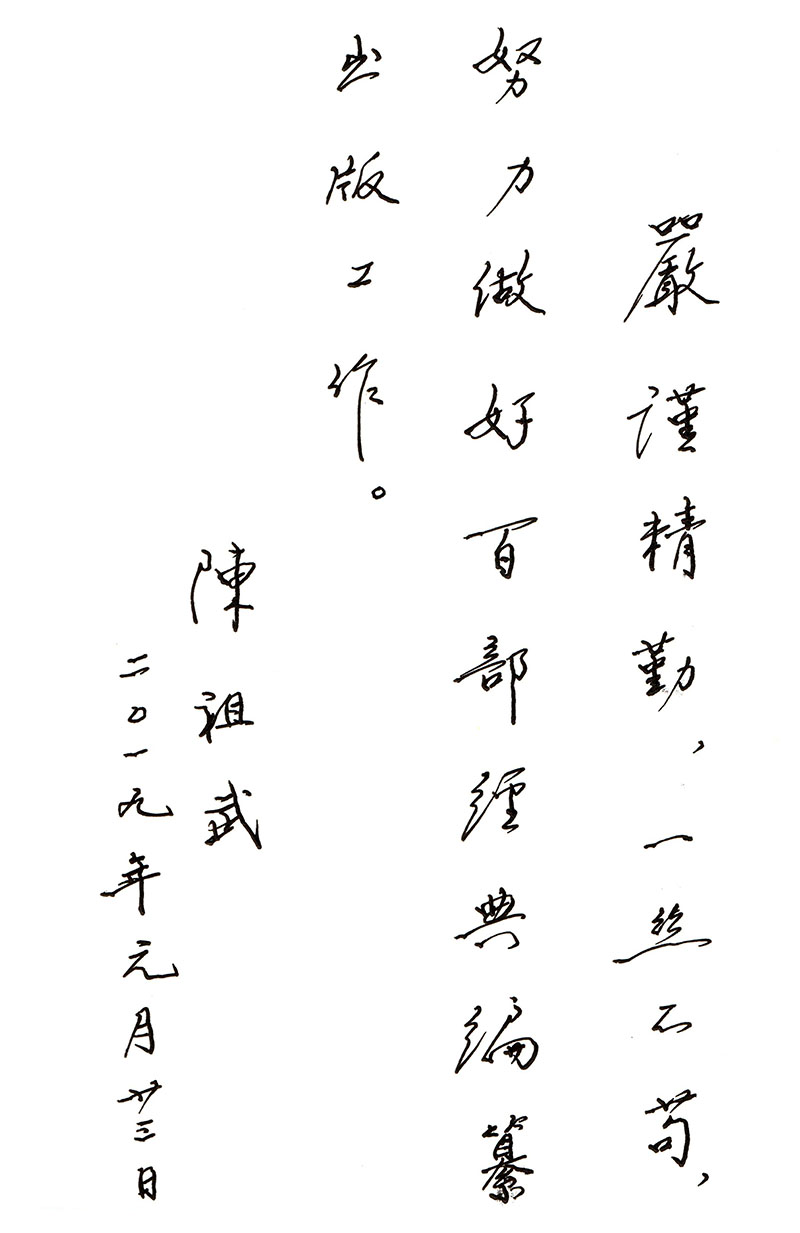 嚴謹精勤，一丝不苟，
努力做好百部經典编纂
出版工作。
陳祖武
二〇一九年元月廿三日